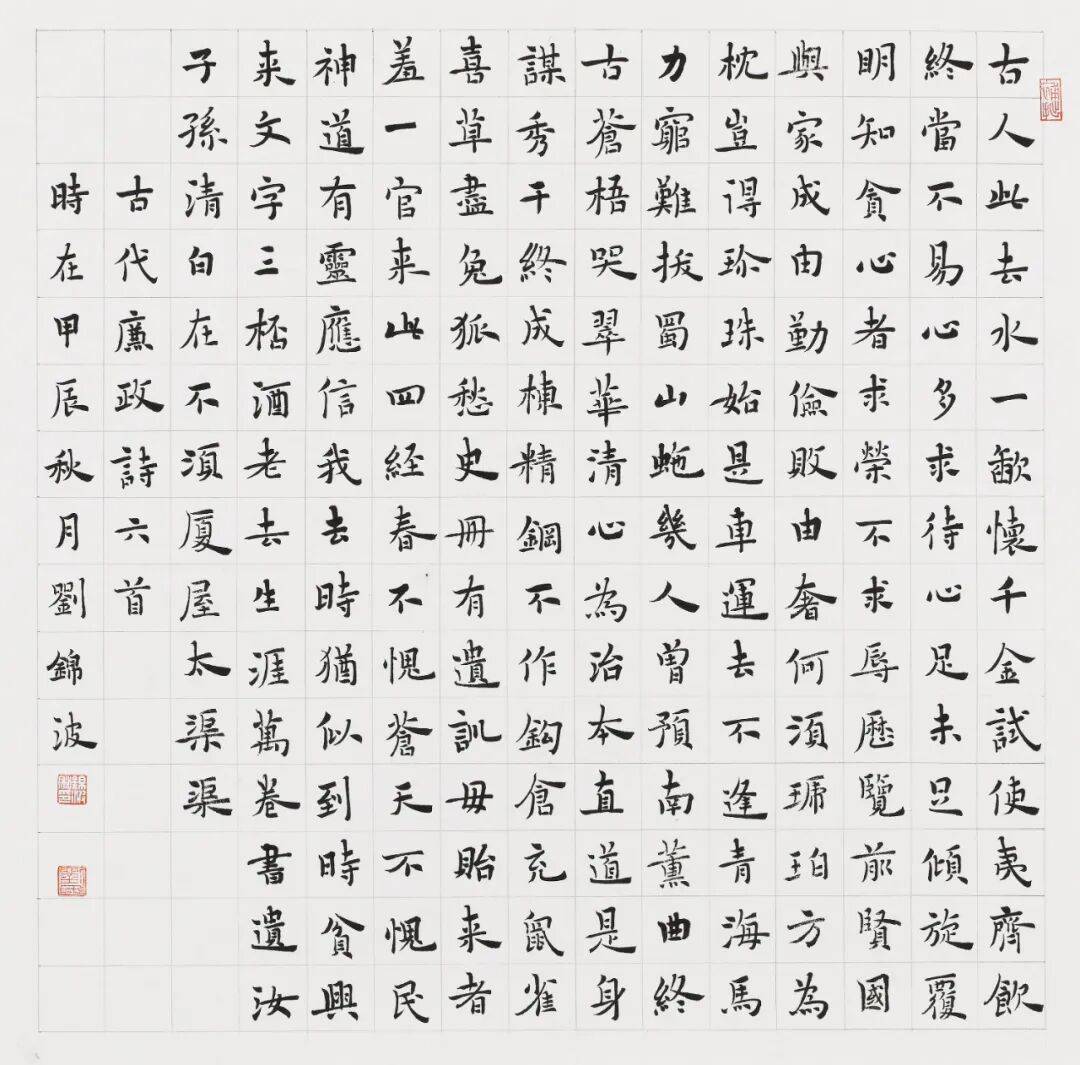 古人此去水一歃懷千金試使夷齊飲
終當不易心多求待心足未足傾旋覆
明知貪心者求榮不求辱歷覽前賢國
與家成由勤儉敗由奢何須琥珀方為
枕豈得珍珠始是車運去不逢青海馬
力窮難拔蜀山虵幾人曾預南薰曲終
古蒼梧哭翠華清心為治本直道是身
謀秀干終成棟精鋼不作鈎倉充鼠雀
喜草盡兔狐愁史冊有遺訓毋貽来者
羞一官来此四經春不愧蒼天不愧民
神道有靈應信我去時猶似到時貧興
来文字三杯酒老去生涯萬卷書遺汝
子孫清白在不須廈屋太渠渠
古代廉政詩六首
時在甲辰秋月劉錦波